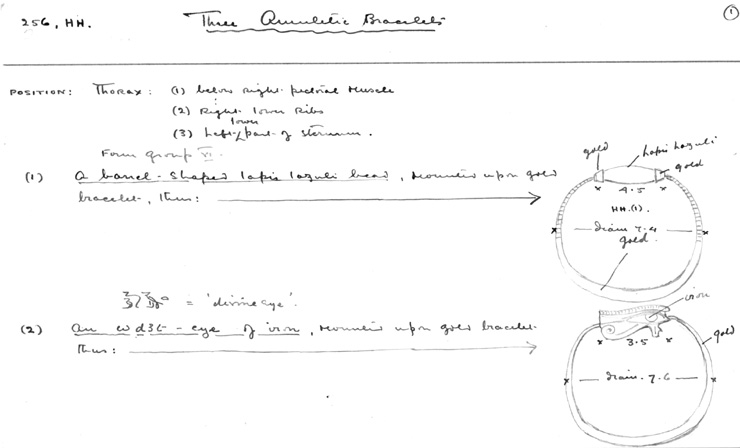 256, HH.
Three Amuletic Bracelets
1
POSITION: Thorax: (1) below right pectoral Muscle
(2) Right lower Ribs
(3) Left lower part of sternum.
Form group VI.
(1) A barrel-shaped lapis lazuli bead, mounted upon gold
bracelet, thus:
gold
lapis lazuli
gold
4.5
HH.(1).
diam 7.4
gold
= 'divine eye'.
(2) An wḏ3t-eye of iron, mounted upon gold bracelet
thus:
iron
3.5
gold
diam. 7.6